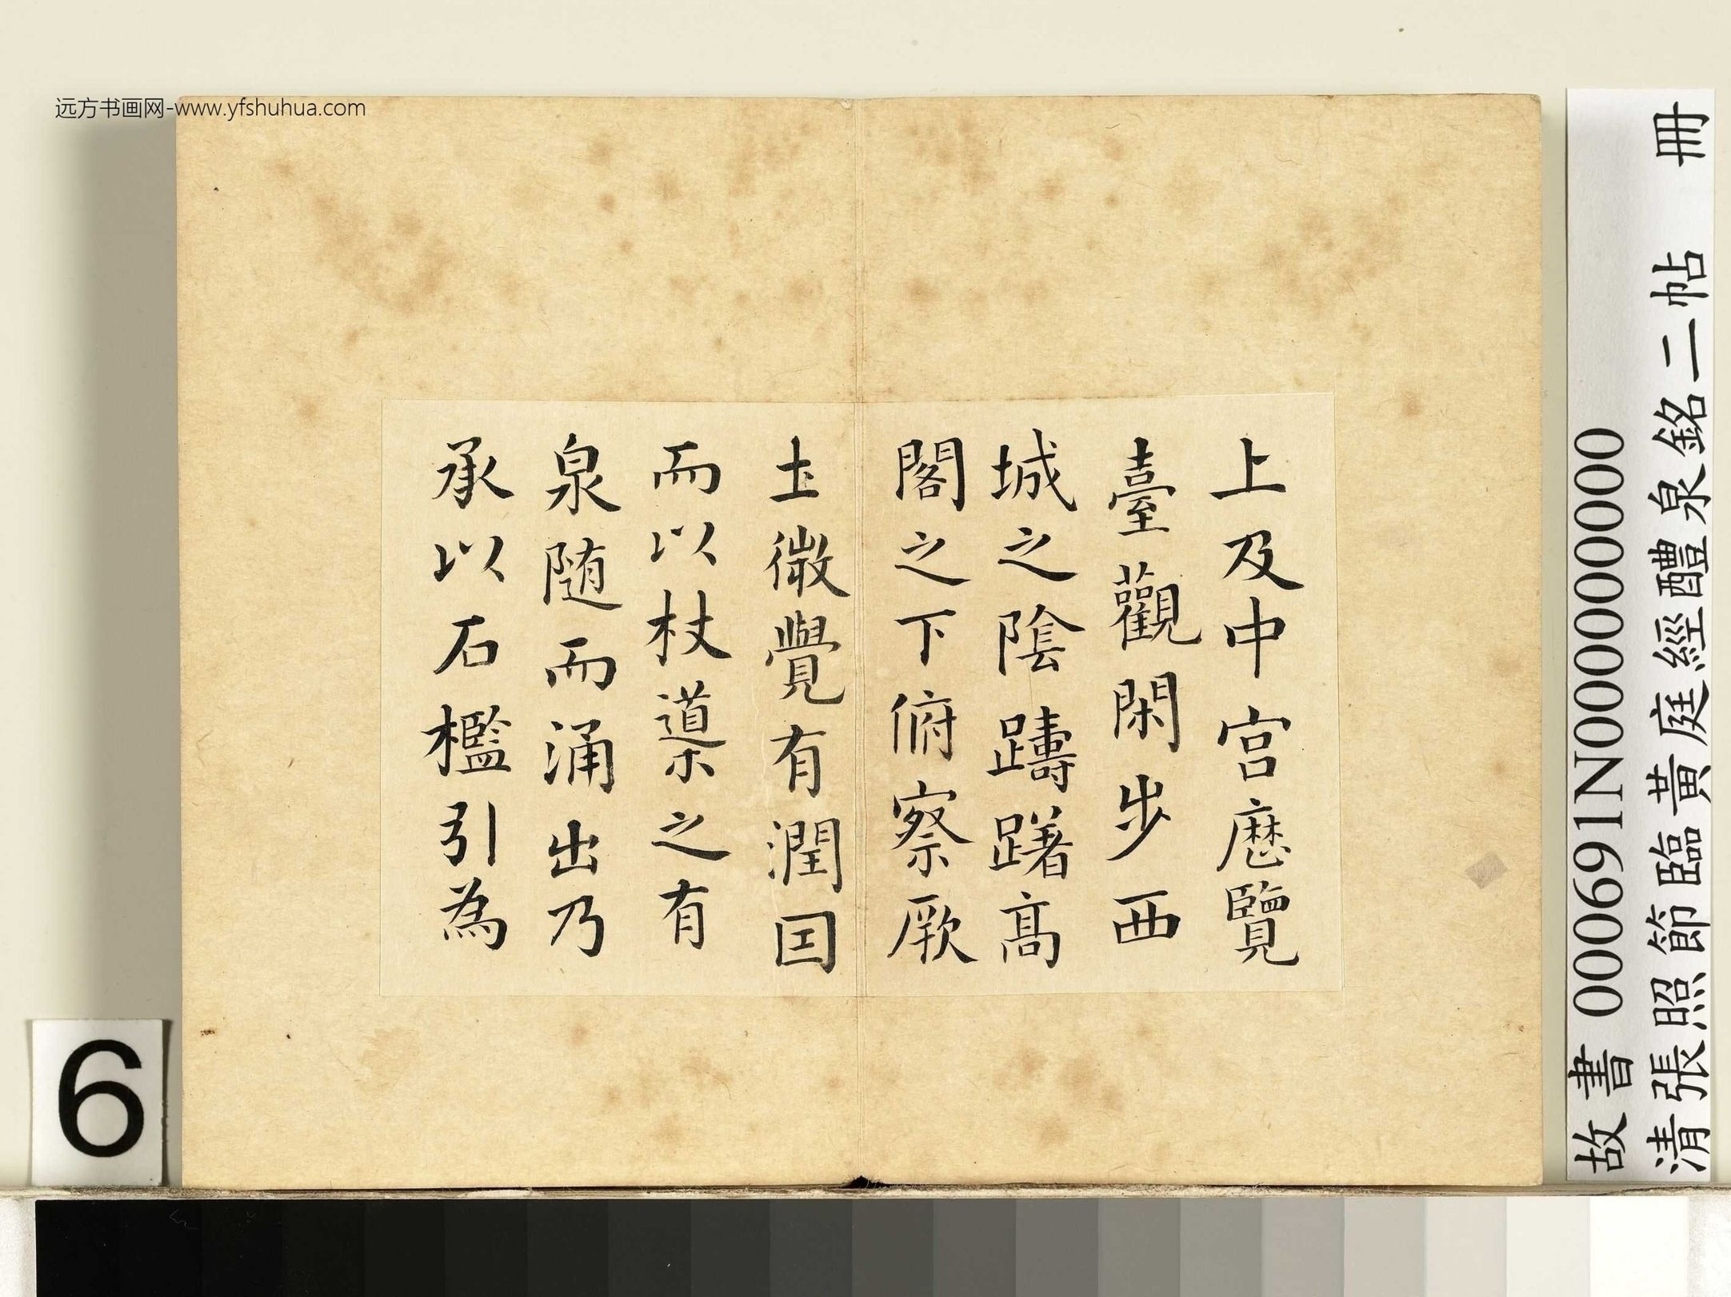 远方书画网-www.yfshuhua.com
上及中宫歷覽
臺觀閑步西
城之陰躊躇高
閣之下俯察厥
土微覺有潤因
而以杖導之有
泉随而涌出乃
承以石檻引為
故書 000691N000000000
清張照節臨黃庭經醴泉銘二帖 冊
6